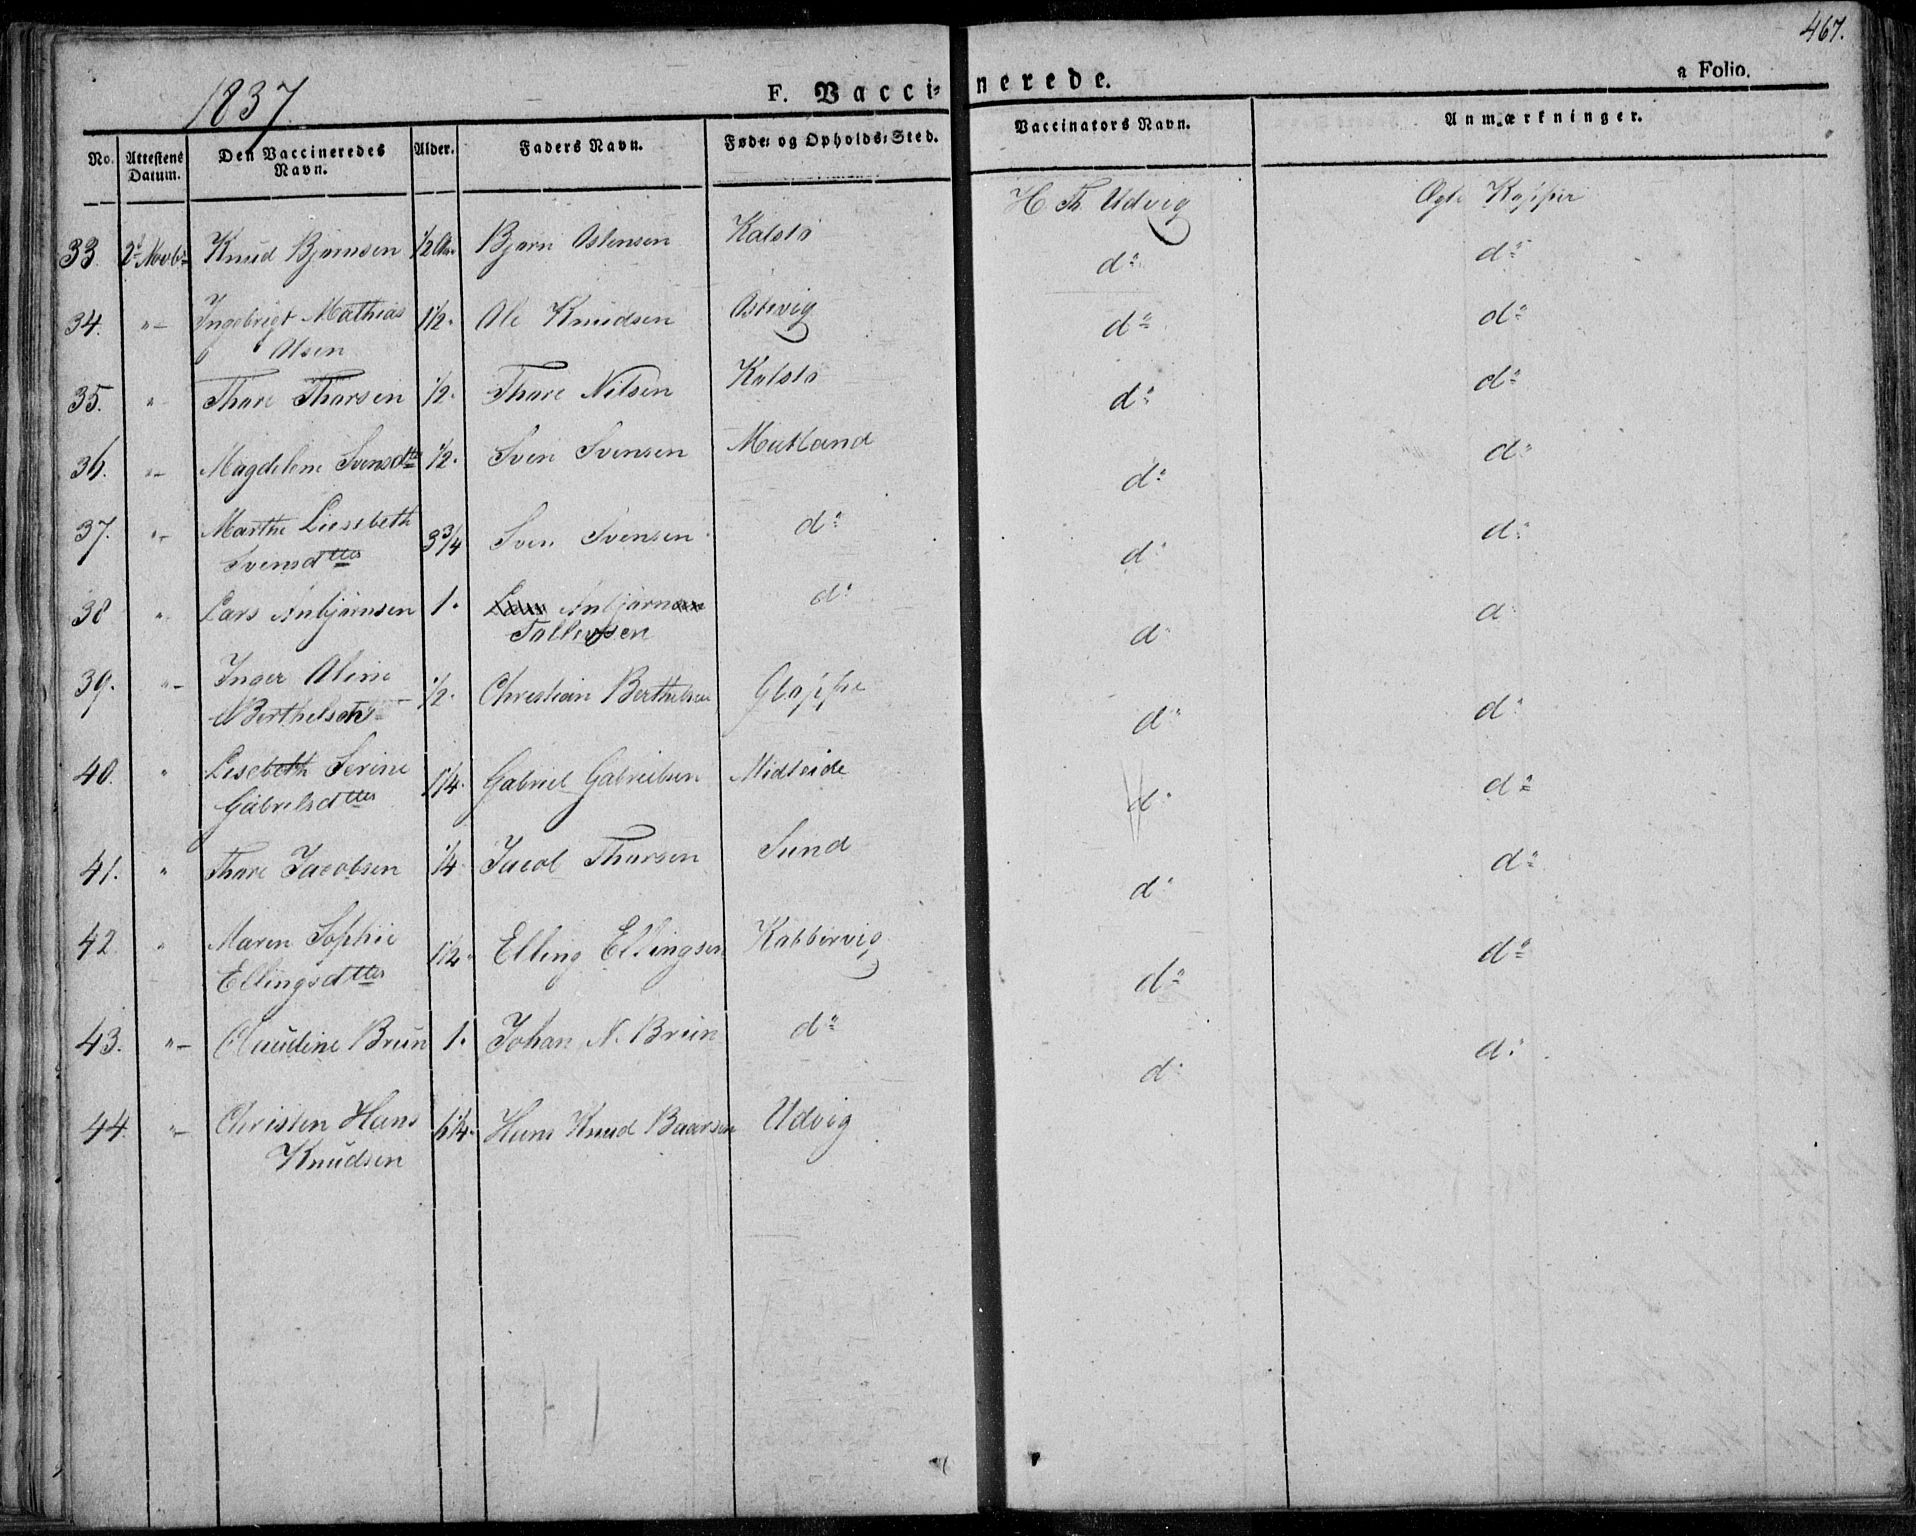 467.
1837
F. Vaccinerede.
a Folio.
No. Attestens Datum. Den Vaccineredes Navn. Alder. Faders Navn. Føde- og Opholds-Sted. Vaccinators Navn. Anmærkninger.
33. 2d Novbr Knud Bjørnsen 1/2 Aar Bjørn Ostensen Kalstø H. Th. Udvig Ægte Kopper
34. "- Ingebrigt Mathias 1 1/2. Ole Knudsen Ostevig d: d:
Olsen
35. "- Thore Thorsen 1/2. Thore Nilsen Kalstø d: d:
36. "- Magdelene Svensdtr 1/2. Sven Svensen Mukland d: d:
37. "- Marthe Liesebeth 3 3/4 Sven Svensen d: d: d:
Svensdtter
38 " Lars Anbjørnsen 1. Anbjørn d: d: d:
Tallevsen
39. "- Inger Oline 1/2. Christian Berthelsen Gloppe d: d
Berthelsdtr
40. " Lisebeth Serine 1 1/4. Gabriel Gabrielsen Midteide d: d:
Gabrielsdtter
41. " Thore Jacobsen 1/4 Jacob Thorsen Sund d: d:
42. " Maren Sophie 1 1/2. Elling Ellingsen Kabbervig d: d:
Ellingsdtter
43. "- Claudine Brun 1. Johan N. Brun d: d: d:
44. "- Christen Hans 6 1/4. Hans Knud Baarsen Udvig d: d:
Knudsen